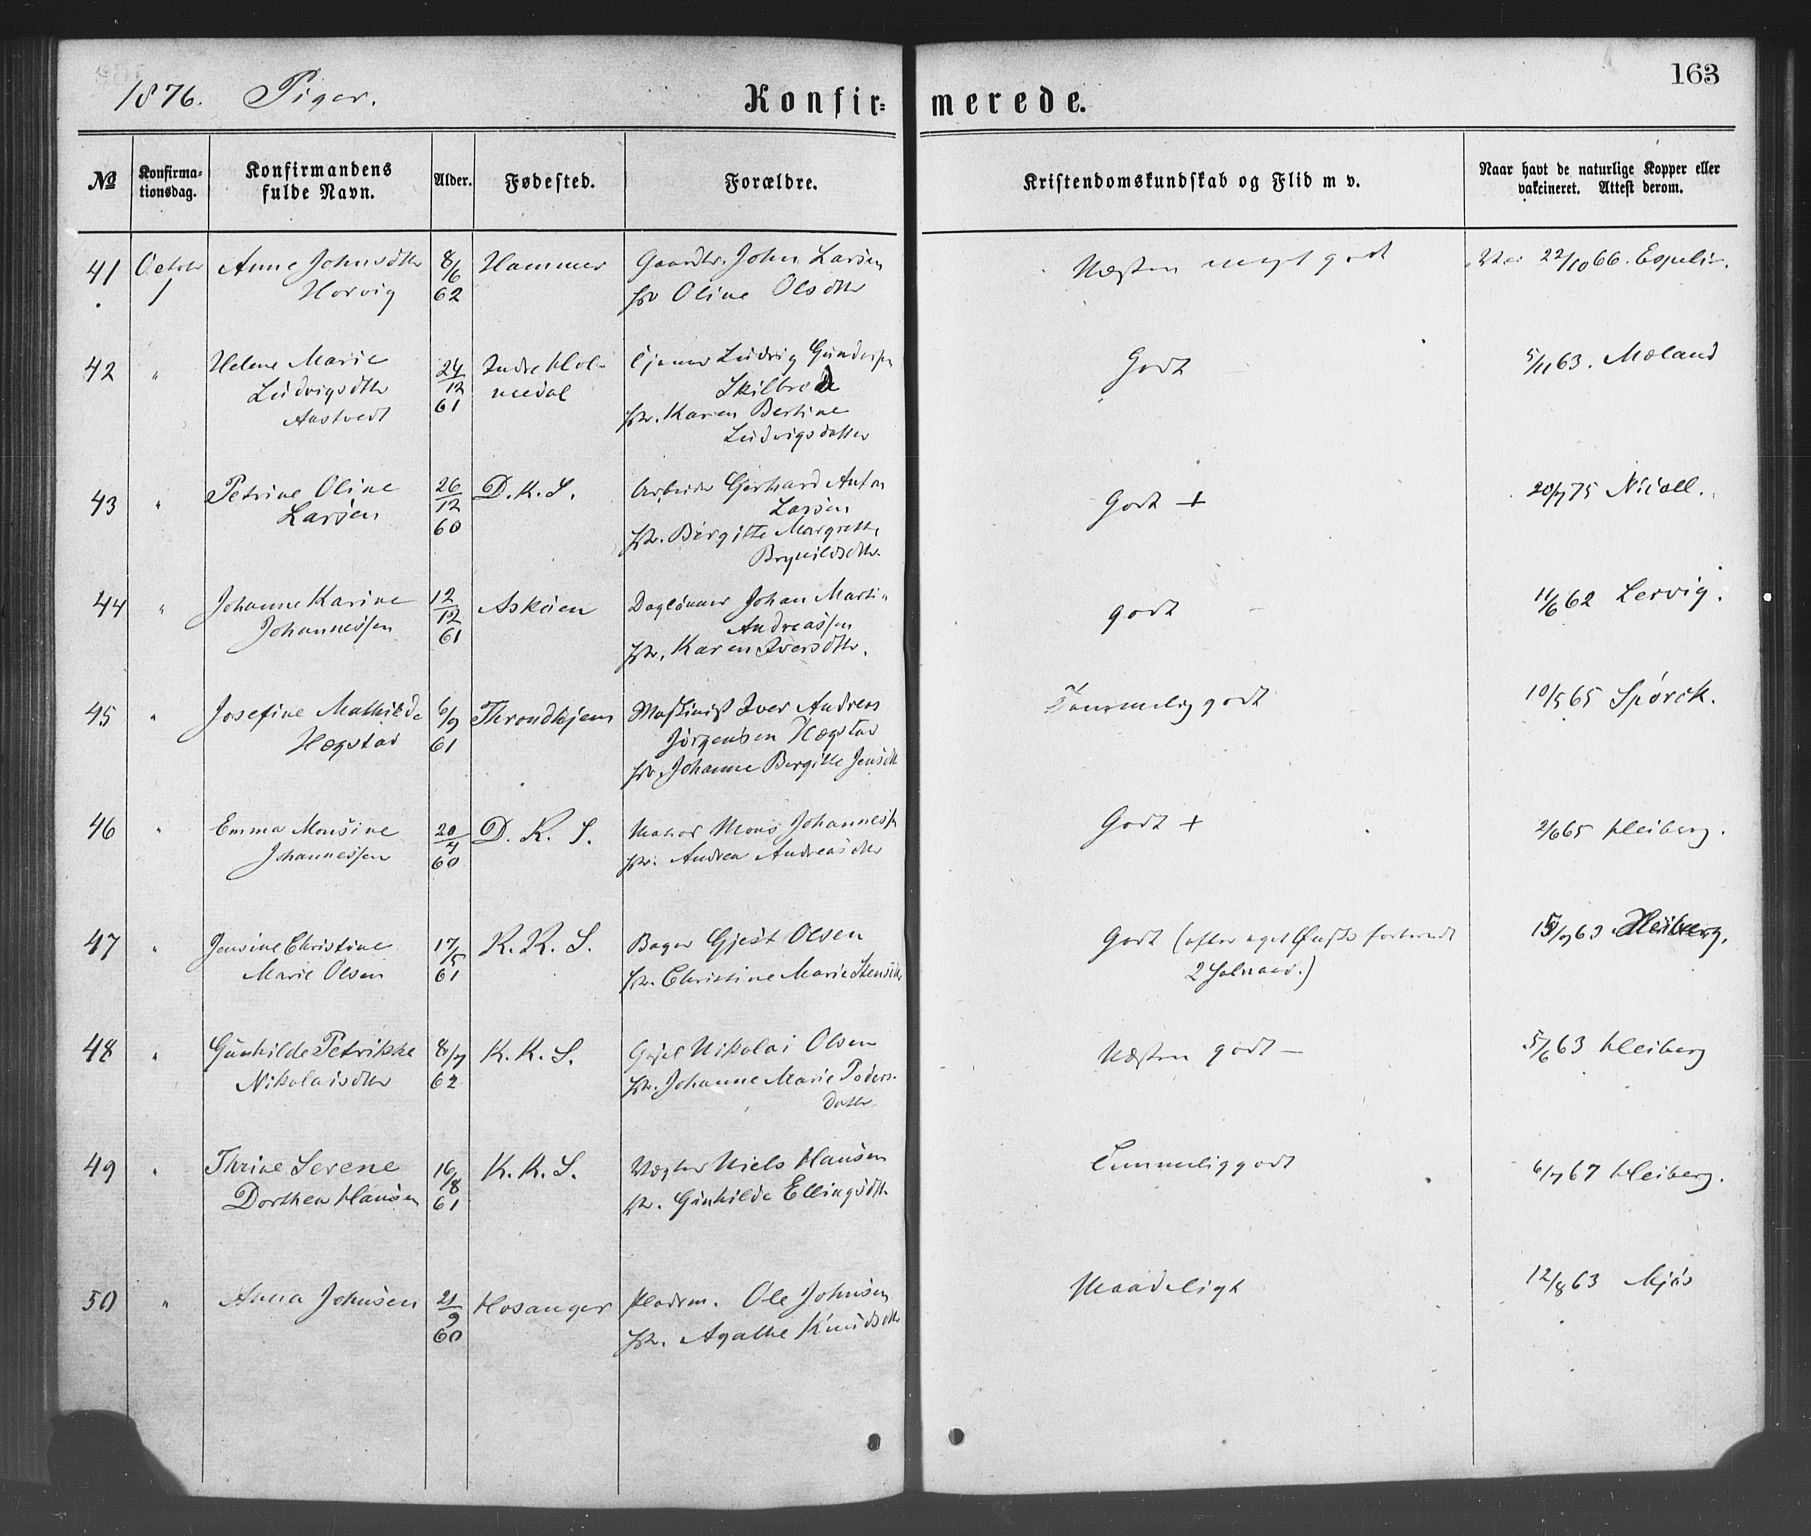 163
1876. Piger.
Konfir= merede.
№ Konfirma-tionsdag. Konfirmandens fulde Navn. Alder. Fødested. Forældre. Kristendomskundskab og Flid m v. Naar havt de naturlige Kopper eller vakcineret. Attest derom.
41 October Anne Johnsdtr 8/6 Hammer Gaardbr. John Larsen Næsten meget godt 22/10 66. Espelin.
1 Horvig 62 Oline Olsdtr
42 " Helene Marie 24/12 Indre Hol- Tjener Ludvig Gunders Godt 5/11 63. Mæland
Ludvigsdtr 61 medal Skilbred
Aastvedt Karen Bertine
Ludvigsdatter
43 " Petrine Oline 26/12 D.K.S. Arbeider Gerhard Anton Godt + 20/7 75 Nicoll.
Larsen 60 Larsen
Birgitte Margrethe
Brynildsdtr.
44 " Johanne Karine 12/12 Askøen Daglønner Johan Martin godt 11/6 62 Lervig.
Johannessen 61 Andreassen
Karen Iversdtr.
45 " Josefine Mathilde 6/9 Throndhjem Maskinist Iver Andreas Temmelig godt 10/5 65 Spørck.
Hægstad 61 Jørgensen Hægstad
Johanne Birgitte Jensdtr
46 " Emma Monsine 20/4 D. K. S. Mons Johannessen Godt + 2/6 65 Heiberg.
Johannessen 60 Andrea Andreasdtr
47 " Jensine Christine 17/5 K. K. S. Bager Gjest Olsen Godt (efter eget Ønske 63 Heiberg.
Marie Olsen 61 Christine Marie 2
48 " Gunhilde Petrikke 8/7 K. K. S. Nikolai Olsen Næsten godt – 5/6 63 Heiberg
Nikolaisdtr 62 Johanne Marie Peders-
datter
49 " Thrine Serene 16/8 K. K. S. Vægter Niels Hansen Temmelig godt 6/7 67 Heiberg.
Dorthea Hansen 61 Gunhilde Ellingsdtr
50 " Anna Johnsen 21/9 Hosanger Pladsm. Ole Johnsen Maadeligt 12/8 63 Mjøs
60 Agathe Knudsdtr